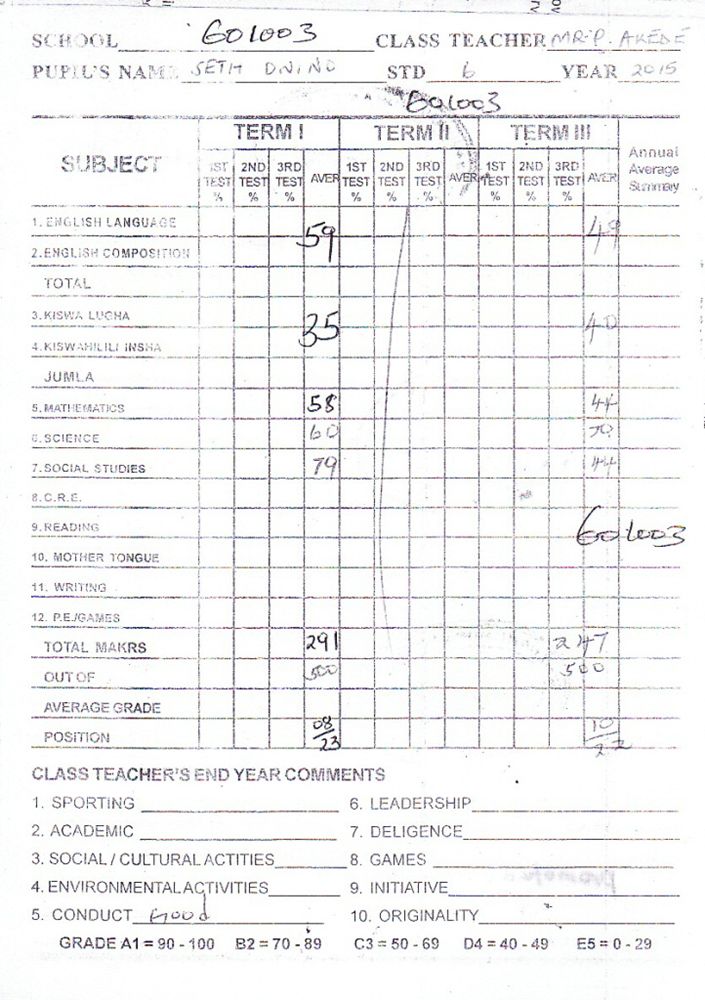 SCHOOL 601003 CLASS TEACHER MR. P. AKEDE
PUPIL'S NAME SETH STD 6 YEAR 2015
601003
SUBJECT TERM I TERM II TERM III Annual Average Summary
1ST TEST % 2ND TEST % 3RD TEST % AVER 1ST TEST % 2ND TEST % 3RD TEST % AVER 1ST TEST % 2ND TEST % 3RD TEST % AVER
1. ENGLISH LANGUAGE 59 49
2. ENGLISH COMPOSITION
TOTAL
3. KISWA LUGHA 35 40
4. KISWAHILILI INSHA
JUMLA
5. MATHEMATICS 58 44
6. SCIENCE 60 70
7. SOCIAL STUDIES 79 44
8. C.R.E.
9. READING 601003
10. MOTHER TONGUE
11. WRITING
12. P.E./GAMES
TOTAL MAKRS 291 247
OUT OF 500 500
AVERAGE GRADE
POSITION 08/23 10/22
CLASS TEACHER'S END YEAR COMMENTS
1. SPORTING 6. LEADERSHIP
2. ACADEMIC 7. DELIGENCE
3. SOCIAL / CULTURAL ACTITIES 8. GAMES
4. ENVIRONMENTAL ACTIVITIES 9. INITIATIVE
5. CONDUCT Good 10. ORIGINALITY
GRADE A1 = 90 - 100 B2 = 70 - 89 C3 = 50 - 69 D4 = 40 - 49 E5 = 0 - 29